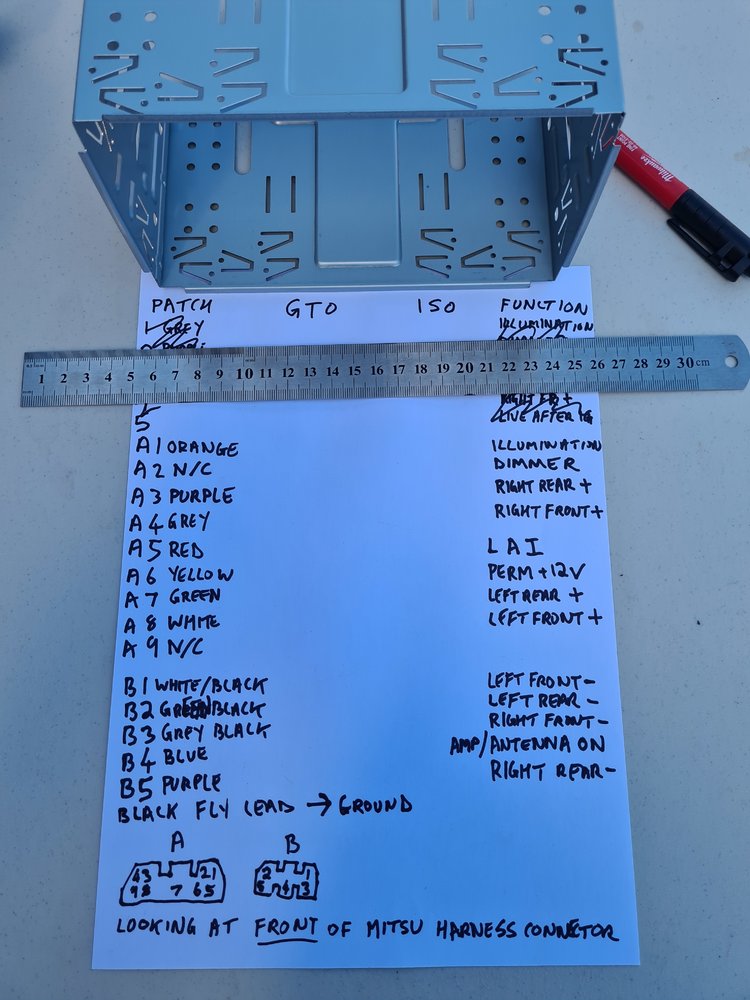 Milwaukee
PATCH GTO ISO FUNCTION
1 GREY ILLUMINATION
1 2 3 4 5 6 7 8 9 10 11 12 13 14 15 16 17 18 19 20 21 22 23 24 25 26 27 28 29 30 cm
5 LIVE AFTER IG
A1 ORANGE ILLUMINATION
A2 N/C DIMMER
A3 PURPLE RIGHT REAR +
A4 GREY RIGHT FRONT +
A5 RED LAI
A6 YELLOW PERM +12V
A7 GREEN LEFT REAR +
A8 WHITE LEFT FRONT +
A9 N/C
B1 WHITE/BLACK LEFT FRONT -
B2 GREEN BLACK LEFT REAR -
B3 GREY BLACK RIGHT FRONT -
B4 BLUE AMP/ANTENNA ON
B5 PURPLE RIGHT REAR -
BLACK FLY LEAD → GROUND
A B
43 21 2 1
98 7 65 5 4 3
LOOKING AT FRONT OF MITSU HARNESS CONNECTOR